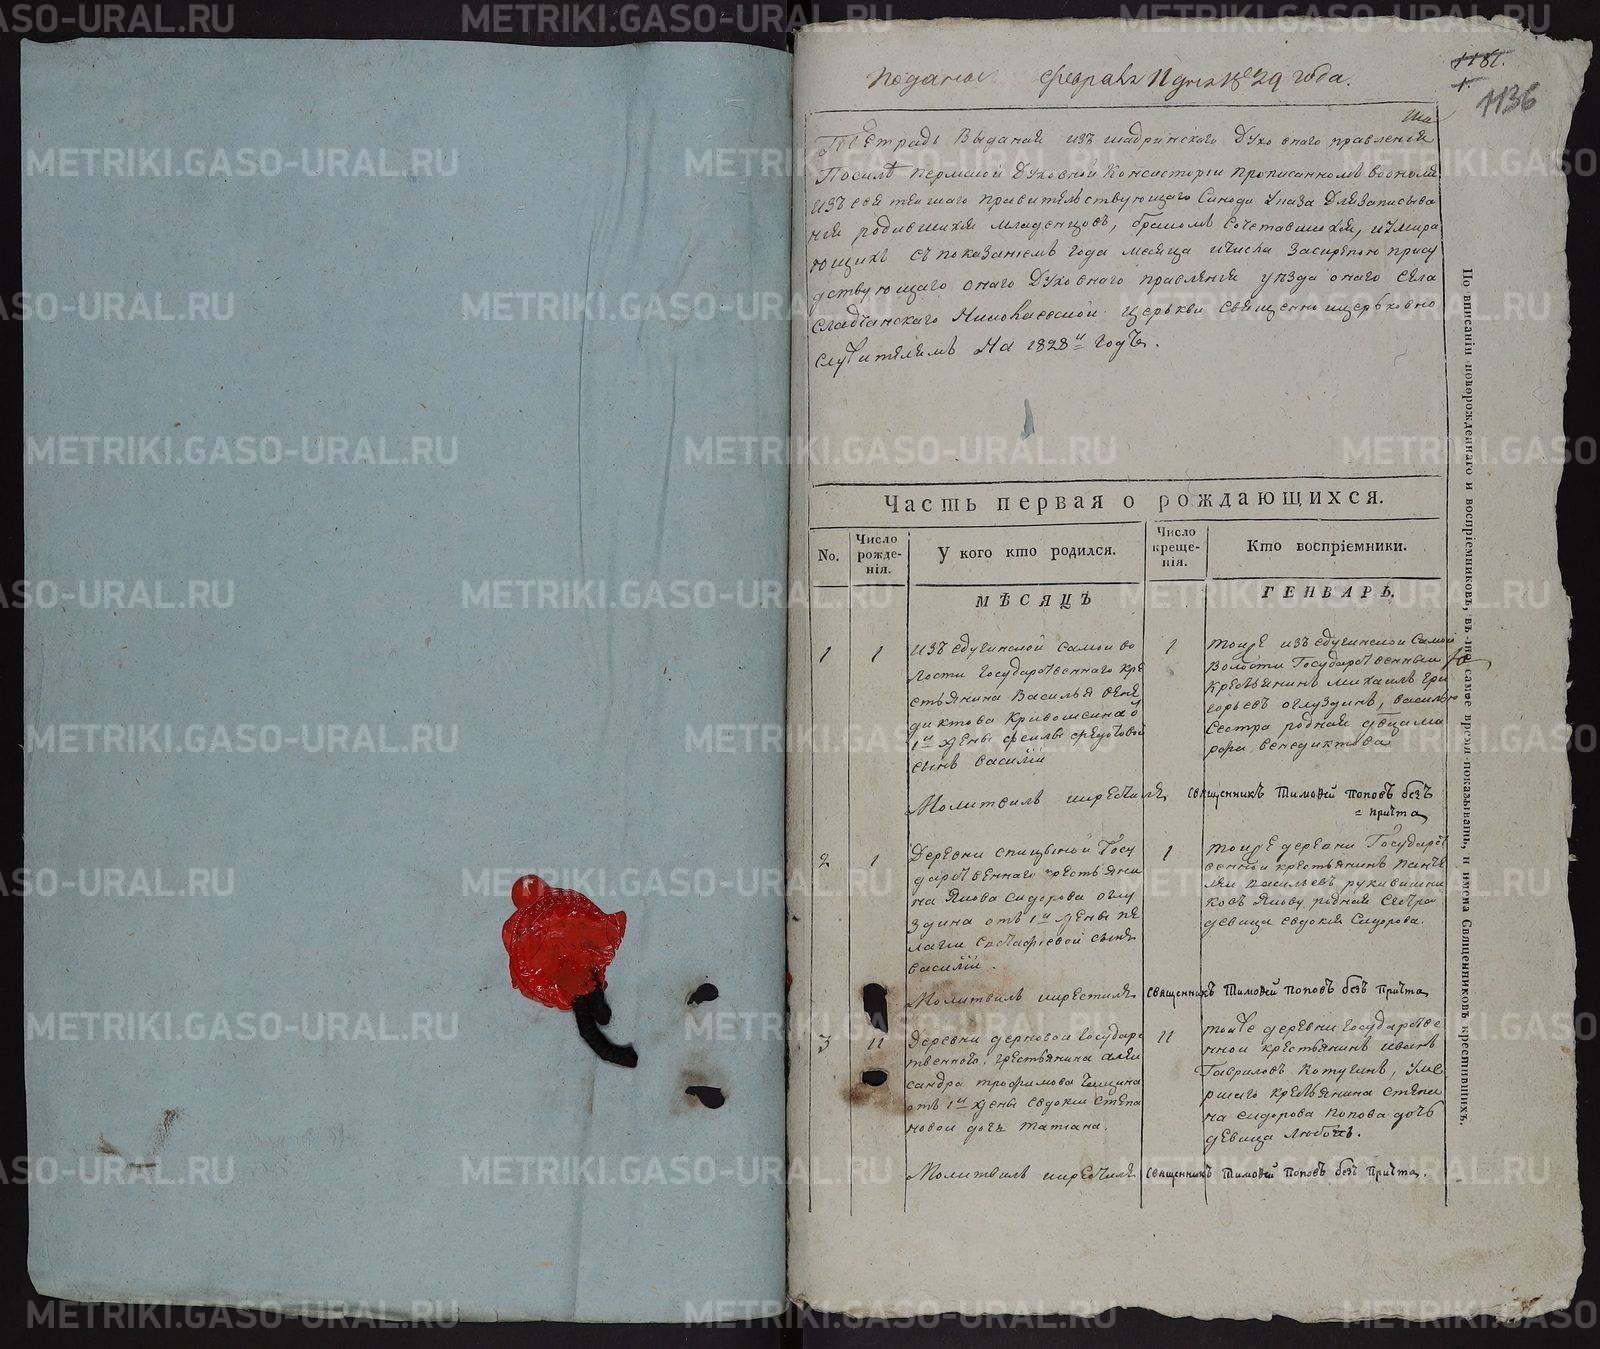 Поданы февраля 11 дня 1829 года.
1136
Тетрадь выданая изъ шадринскаго Духовнаго правления
Посилѣ пермской Духовной Консистории прописанномъ восполн
изъ святейшаго правительствующаго Синода указа Для записыва
ния родившихся младенцовъ, бракомъ сочетавшихся, и умира
ющихъ съ показаниемъ года месяца и числа за скрепою прису
дствующаго онаго Духовнаго правления уѣзда онаго села
Сладчанскаго Николаевской церькви священно и церьковно
служителямъ На 1828й годъ.
Часть первая о рождающихся.
No.
Число рожде-нія.
У кого кто родился.
Число креще-нія.
Кто воспріемники.
МѢСЯЦЪ
ГЕНВАРЬ.
1 1
изъ едугинской самой во
лости государственнаго кре
стьянина Василья вене
диктова Кривошеина о
1й жены феклы федотовой
сынъ василій
1
тойже изъ едугинской самой
волости Государственный
крестьянинъ михаилъ гри
горьевъ оглуздинъ, василью
сестра родная дѣвица ма
рфа, венедиктова
Молитвилъ и крестилъ священникъ Тимоѳей поповъ безъ
= причта
2 1
Деревни спицыной Госу
дарственнаго крестьяни
на Якова сидорова оглу
здина отъ 1й жены пе
лагеи евстафьевой сынъ
василій.
1
тойже деревни Государст
венной крестьянинъ пантѣ
лей васильевъ рукавишни
ковъ Якову родная сестра
девица евдокия Сидорова.
Молитвилъ и крестилъ священникъ Тимоѳей поповъ безъ причта
3 11
Деревни дерновой государс
твеннаго крестьянина алек
сандра трофимова
отъ 1й жены евдокии степа
новой дочь татиана.
11
тойже деревни государстве
нной крестьянинъ иванъ
Гавриловъ Котугинъ, уме
ршаго крестьянина степа
на сидорова попова дочь
девица любовь.
Молитвилъ и крестилъ священникъ Тимоѳей поповъ безъ причта.
По вписаніи новорожденнаго и воспріемниковъ, въ тоже самое время показывать, и имена Священниковъ крестившихъ.